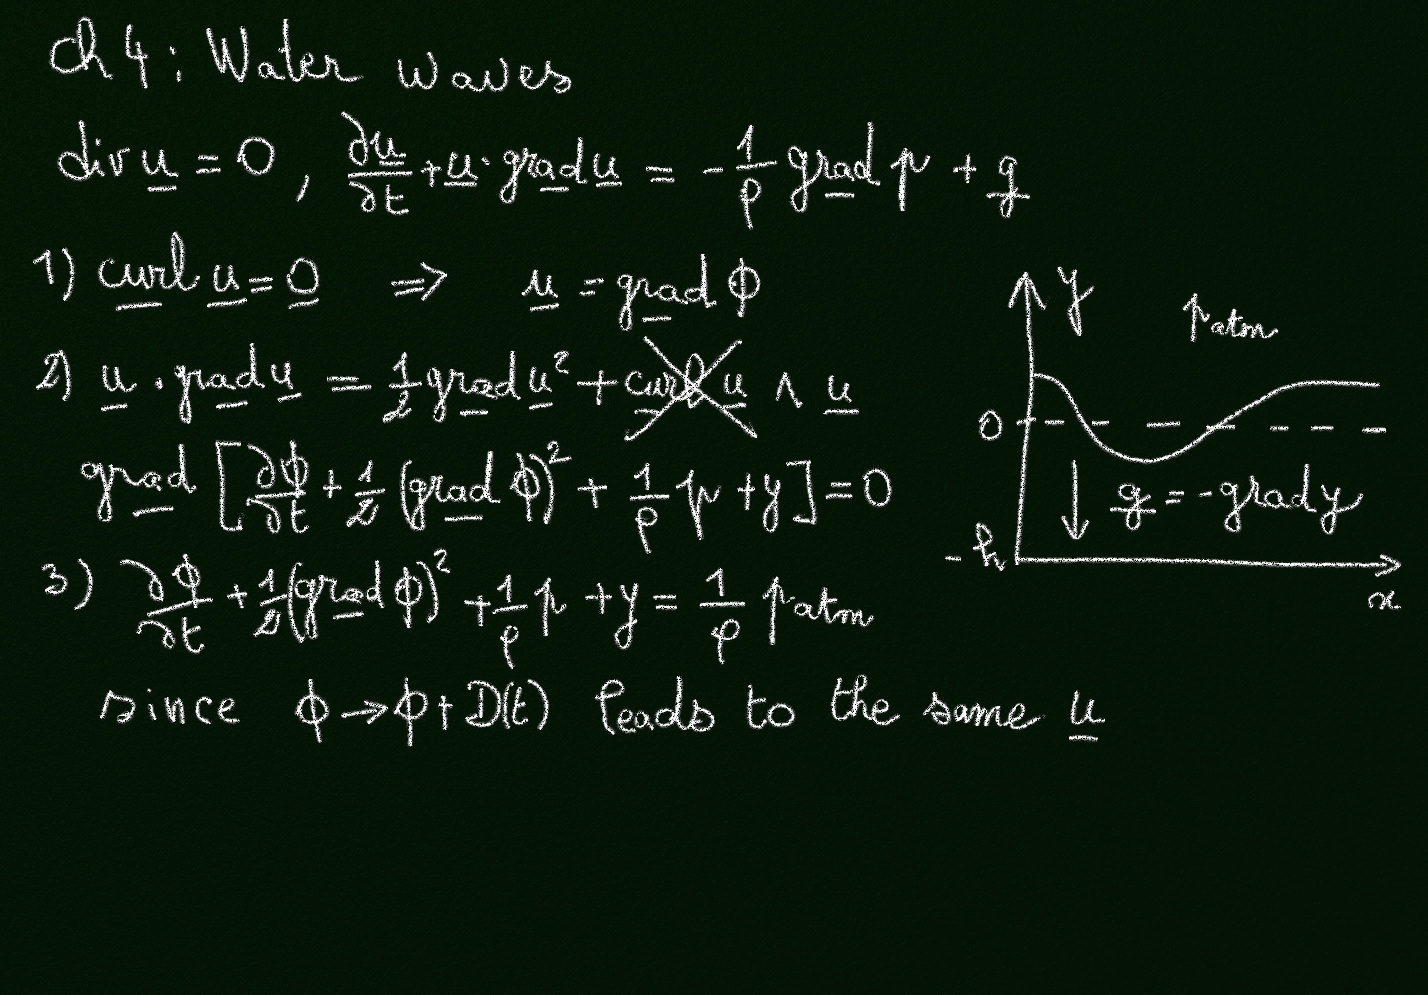 Ch 4 : Water waves
div u = 0 , ∂u/∂t + u · grad u = - 1/ρ grad p + g
1) curl u = 0 ⇒ u = grad ϕ
2) u · grad u = 1/2 grad u² + curl u ∧ u
grad [ ∂ϕ/∂t + 1/2 (grad ϕ)² + 1/ρ p + y ] = 0
3) ∂ϕ/∂t + 1/2 (grad ϕ)² + 1/ρ p + y = 1/ρ p atm
since ϕ → ϕ + D(t) leads to the same u
y
p atm
0
g = - grad y
- h
x